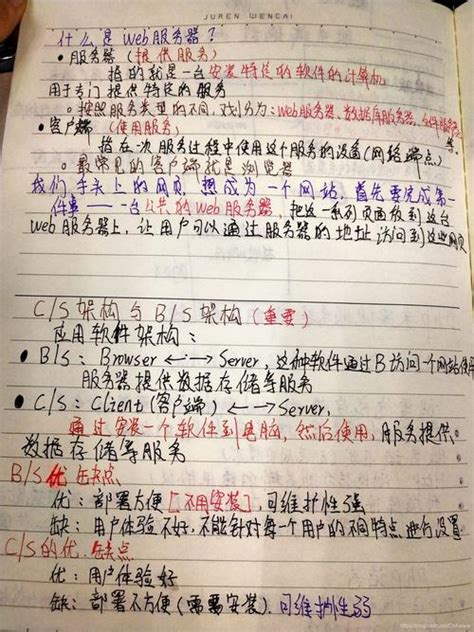 JUREN WENCAI
什么是Web服务器？
• 服务器（提供服务）
指的就是一台安装特定的软件的计算机
用于专门提供特定的服务
○ 按照服务类型的不同，划分为：Web服务器、数据库服务器、邮件服务器等
• 客户端（使用服务）
指在一次服务过程中使用这个服务的设备(网络端点)
○ 最常见的客户端就是浏览器
我们手头上的网页，想成为一个网站，首先要完成第一
件事——一台公共的Web服务器，把这一系列页面放到这台
Web服务器上，让用户可以通过服务器的地址访问到这些网页
C/S架构与B/S架构（重要）
应用软件架构：
• B/S：Browser ←→ Server，这种软件通过B访问一个网站使用
服务器提供数据存储等服务
• C/S：Client(客户端) ←→ Server，
通过安装一个软件到电脑，然后使用，服务提供
数据存储等服务
B/S优缺点
优：部署方便[不用安装]，可维护性强
缺：用户体验不好，不能针对每一个用户的不同特点进行设置
C/S的优.缺点
优：用户体验好
缺：部署不方便（需要安装）.可维护性弱